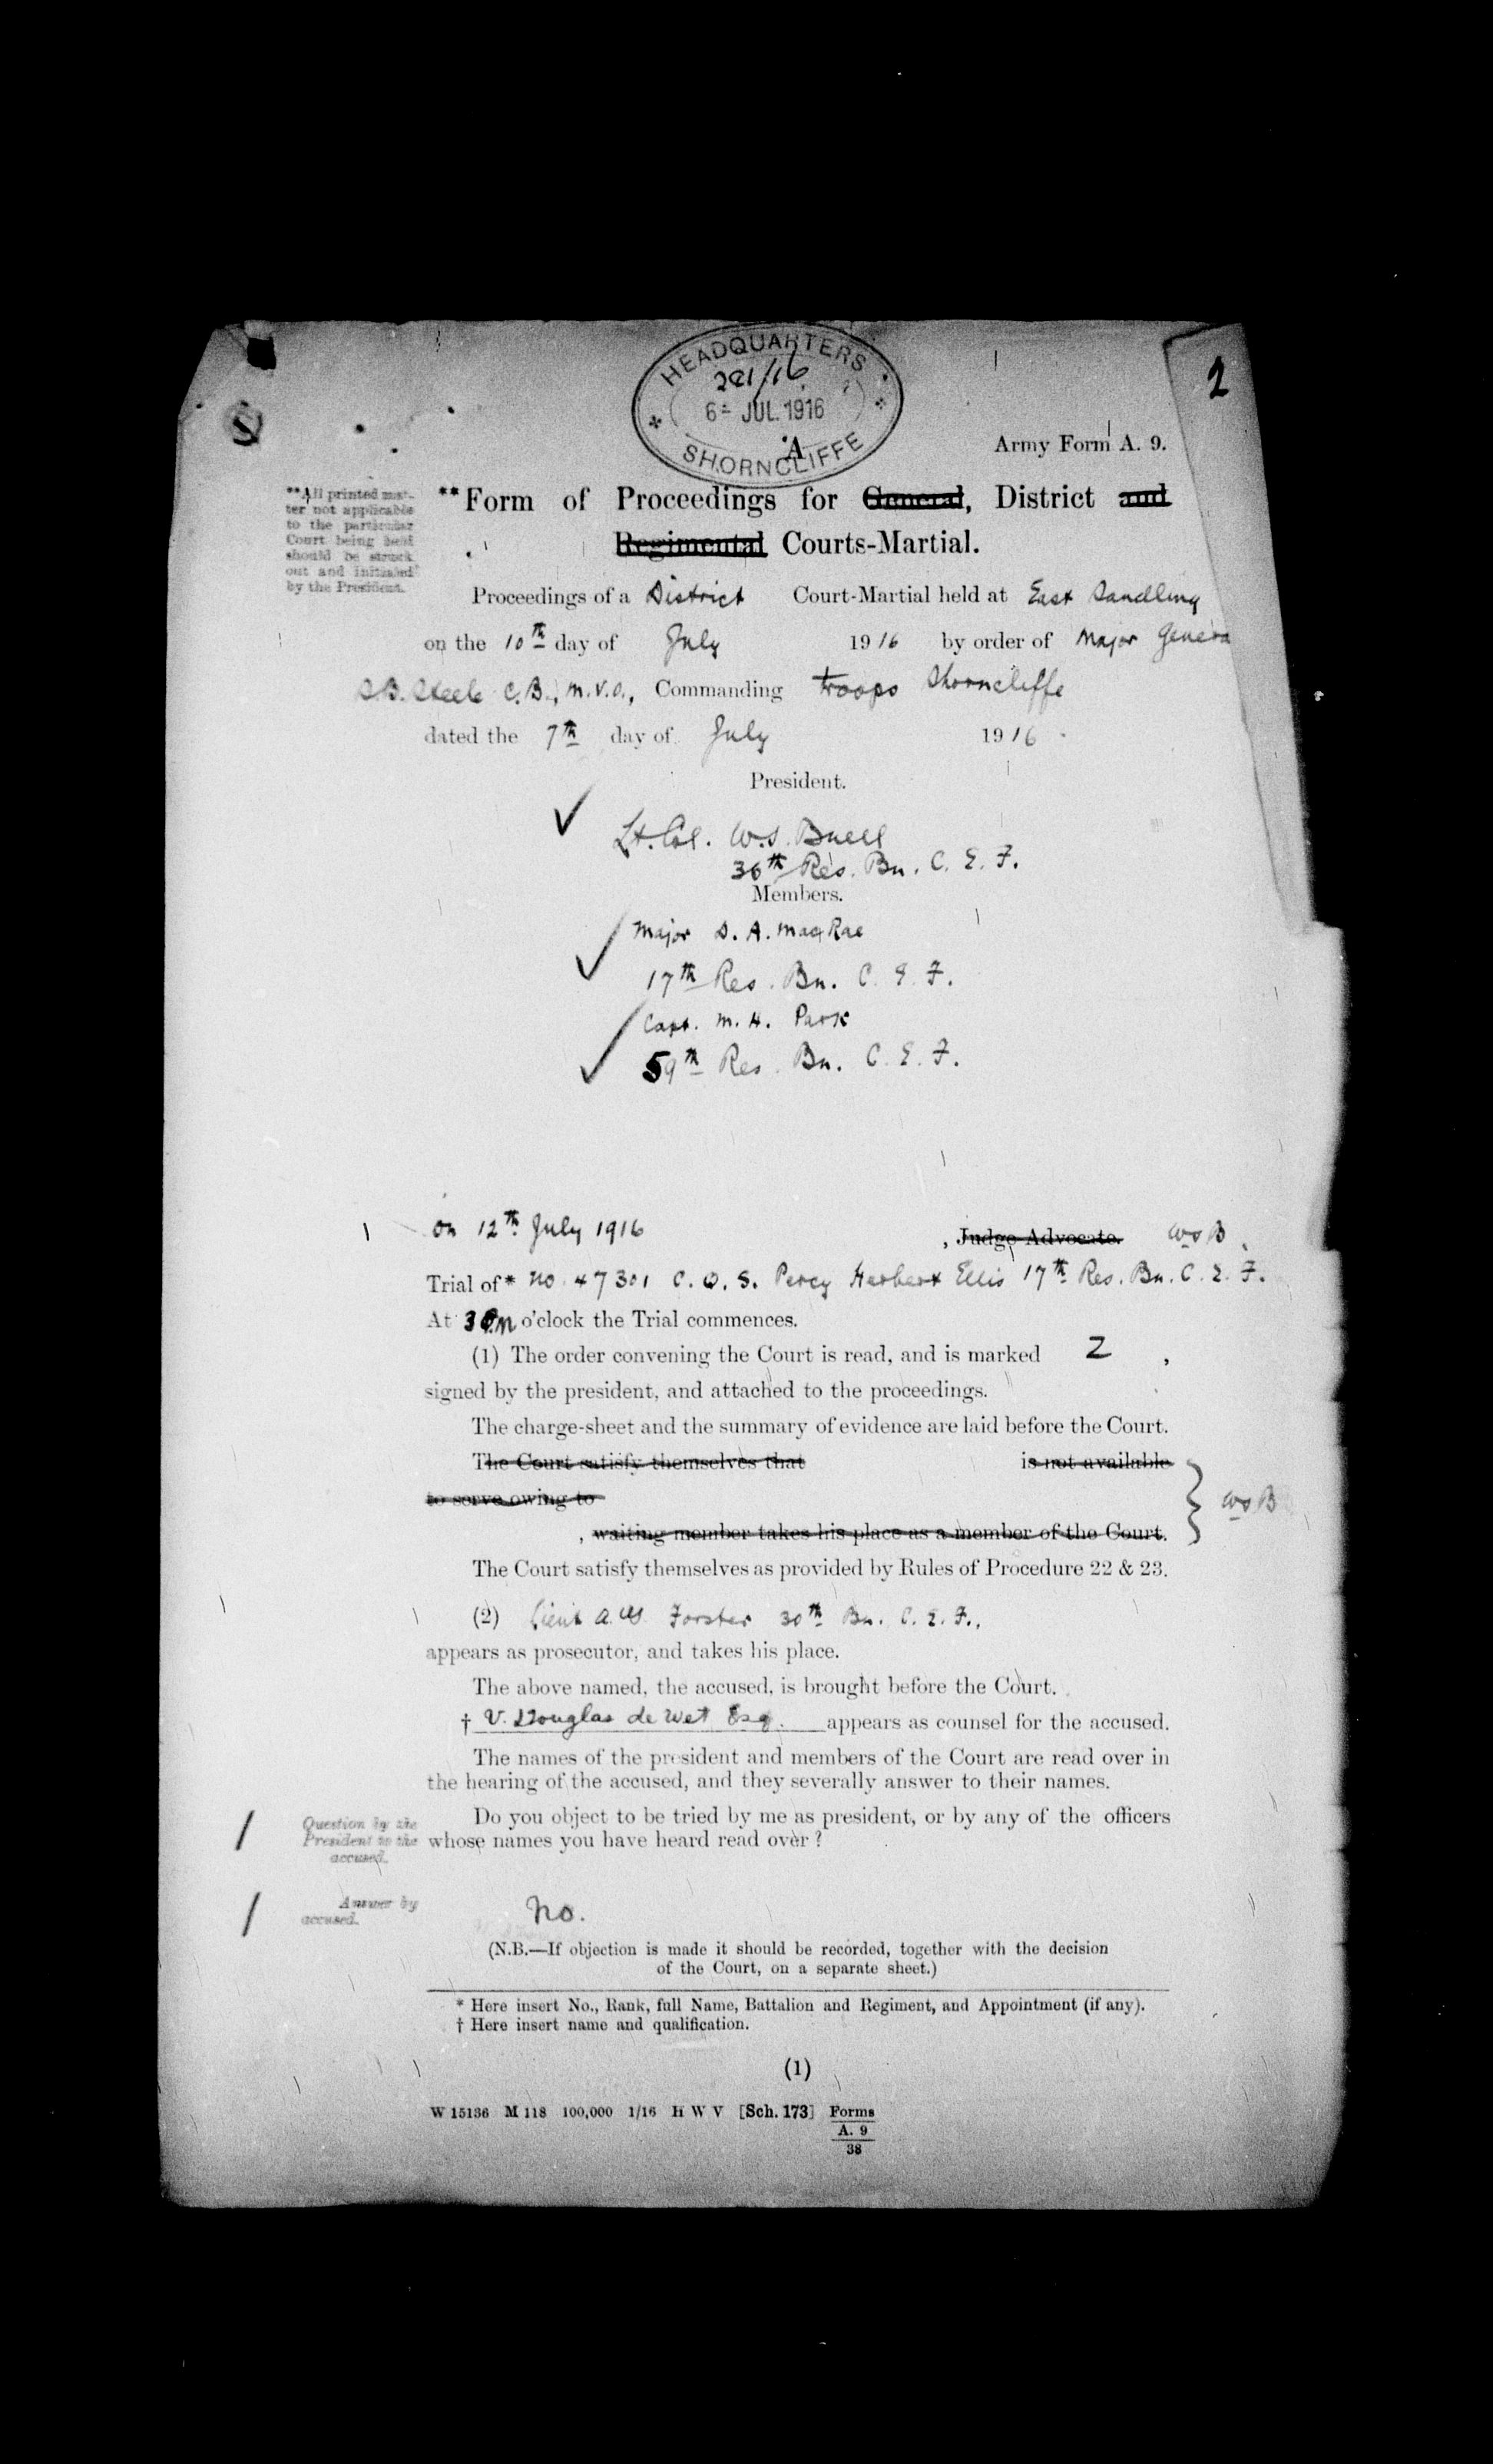 HEADQUARTERS
6 - JUL. 1916
A
SHORNCLIFFE
2
Army Form A. 9.
**All printed mat-
ter not applicable
to the particular
Court being held
should be struck
out and initialed
by the President.
**Form of Proceedings for General, District and
Regimental Courts-Martial.
Proceedings of a District Court-Martial held at East Sandling
on the 10th day of July 1916 by order of Major Genera
S.B. Steele C.B., M.V.O., Commanding troops Shorncliffe
dated the 7th day of July 1916
President.
Lt. Col. W.S. Buell
36th Res. Bn. C. E. F.
Members.
Major D. A. MacRae
17th Res. Bn. C. E. F.
Capt. M. H. Park
59th Res. Bn. C. E. F.
On 12th July 1916
, Judge Advocate. WSB
Trial of* No. 47301 C. Q. S. Percy Herbert Ellis 17th Res. Bn. C. E. F.
At 3 P.M o'clock the Trial commences.
(1) The order convening the Court is read, and is marked Z ,
signed by the president, and attached to the proceedings.
The charge-sheet and the summary of evidence are laid before the Court.
The Court satisfy themselves that is not available
to serve owing to
, waiting member takes his place as a member of the Court.
WSB
The Court satisfy themselves as provided by Rules of Procedure 22 & 23.
(2) Lieut A. W. Forster 30th Bn. C. E. F.,
appears as prosecutor, and takes his place.
The above named, the accused, is brought before the Court.
† V. Douglas de Wet Esq. appears as counsel for the accused.
The names of the president and members of the Court are read over in
the hearing of the accused, and they severally answer to their names.
Question by the
President to the
accused.
Do you object to be tried by me as president, or by any of the officers
whose names you have heard read over ?
Answer by
accused.
No.
(N.B.—If objection is made it should be recorded, together with the decision
of the Court, on a separate sheet.)
* Here insert No., Rank, full Name, Battalion and Regiment, and Appointment (if any).
† Here insert name and qualification.
(1)
W 15136 M 118 100,000 1/16 H W V [Sch. 173] Forms
A. 9
38